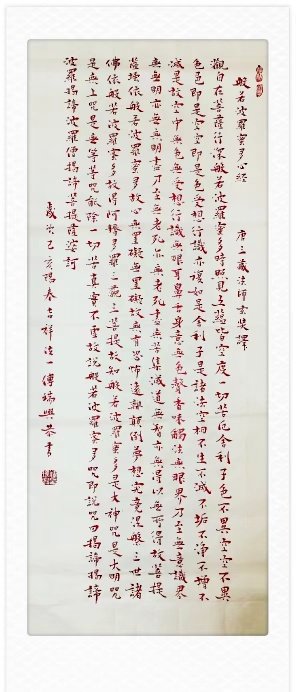 般若波羅蜜多心經 唐三藏法師玄奘譯
觀自在菩薩行深般若波羅蜜多時照見五蘊皆空度一切苦厄舍利子色不異空空不異
色色即是空空即是色受想行識亦復如是舍利子是諸法空相不生不滅不垢不淨不增不
減是故空中無色無受想行識無眼耳鼻舌身意無色聲香味觸法無眼界乃至無意識界
無無明亦無無明盡乃至無老死亦無老死盡無苦集滅道無智亦無得以無所得故菩提
薩埵依般若波羅蜜多故心無罣礙無罣礙故無有恐怖遠離顛倒夢想究竟涅槃三世諸
佛依般若波羅蜜多故得阿耨多羅三藐三菩提故知般若波羅蜜多是大神咒是大明咒
是無上咒是無等等咒能除一切苦真實不虛故說般若波羅蜜多咒即說咒曰揭諦揭諦
波羅揭諦波羅僧揭諦菩提薩婆訶
歲次己亥陽春吉祥法一傅瑞興恭書